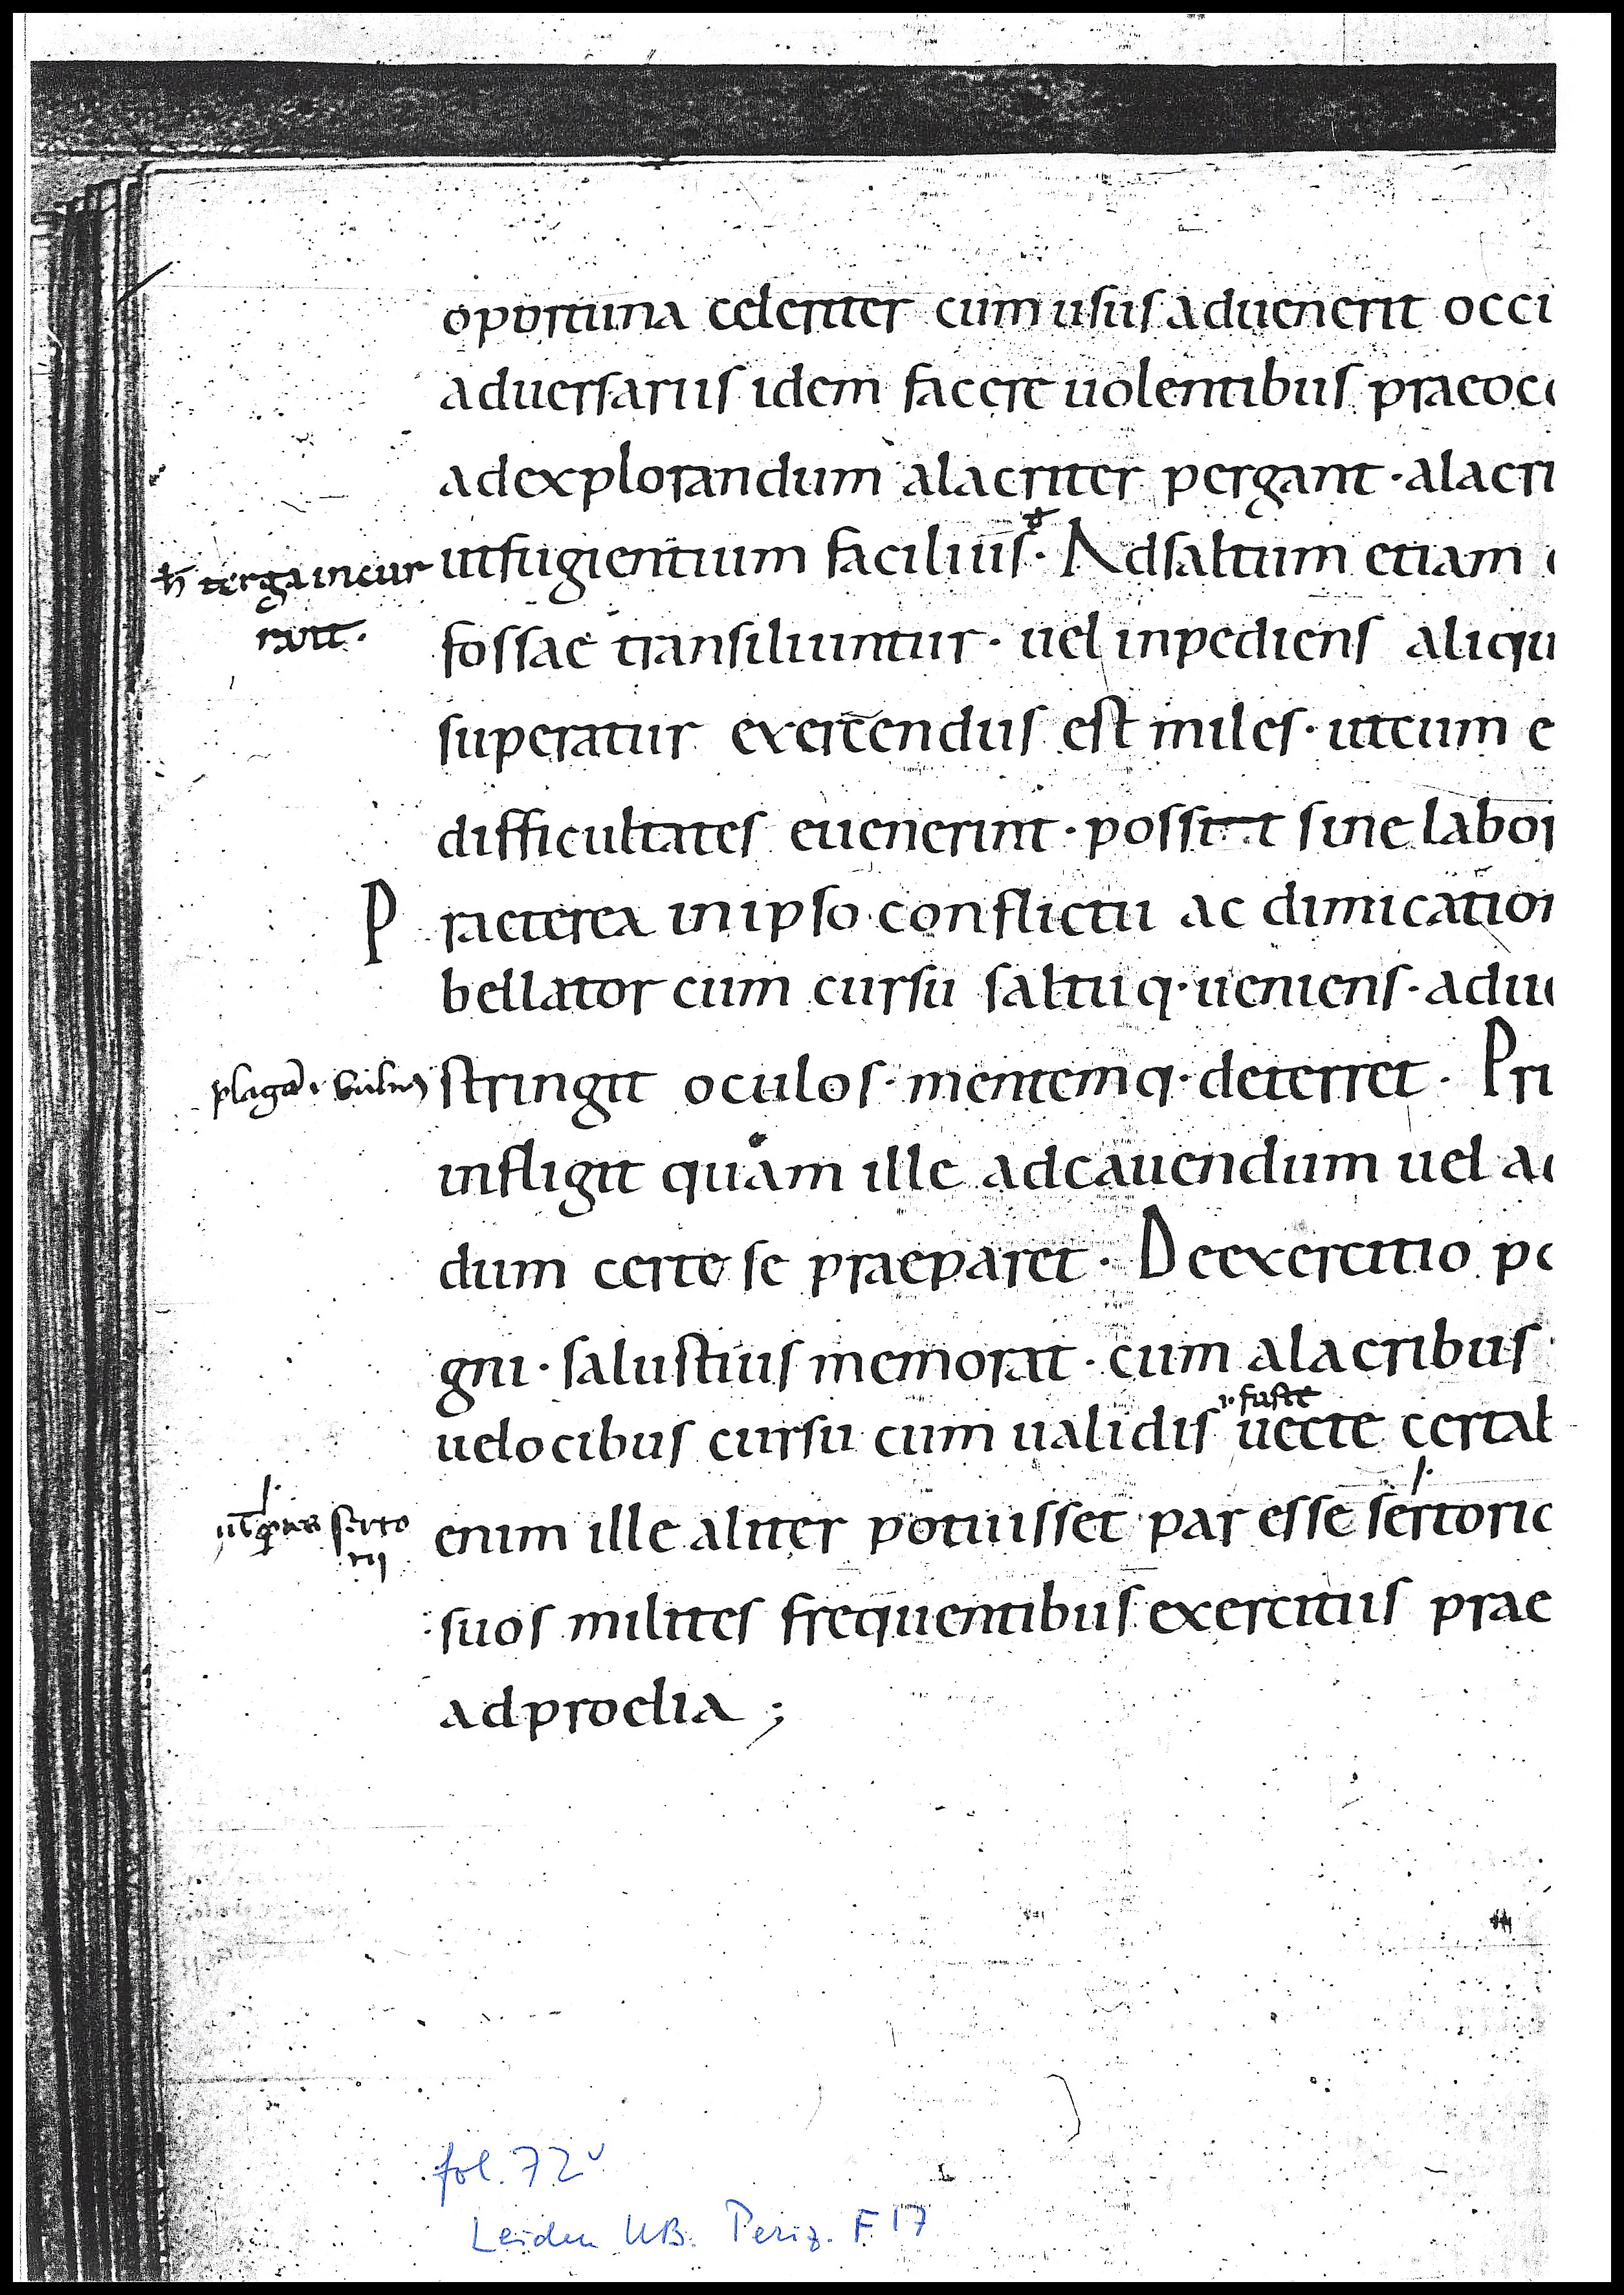 oportuna celeriter cum usus aduenerit occi
aduersariis idem facere uolentibus praeocc
adexplorandum alacriter pergant · alacri
utfugientium facilius · Adsaltum etiam
hr terga incur
rant.
fossae transiliuntur · uel inpediens aliqu
superatur exercendus est miles · utcum e
difficultates euenerint · possint sine labor
Praeterea inipso conflictu ac dimication
bellator cum cursu saltuq· ueniens · adue
plagā · uuln9 
stringit oculos · mentemq· deterret · Pri
infligit quam ille adcauendum uel ad
dum certe se praeparet · Deexercitio po
gni · salustius memorat · cum alacribus
· fuste
uelocibus cursu cum ualidis uecte certab
enim ille aliter potuisset par esse sertorio
serto
rii
suos milites frequentibus exercitiis prae
adproelia ;
fol. 72v
Leiden UB. Periz. F 17